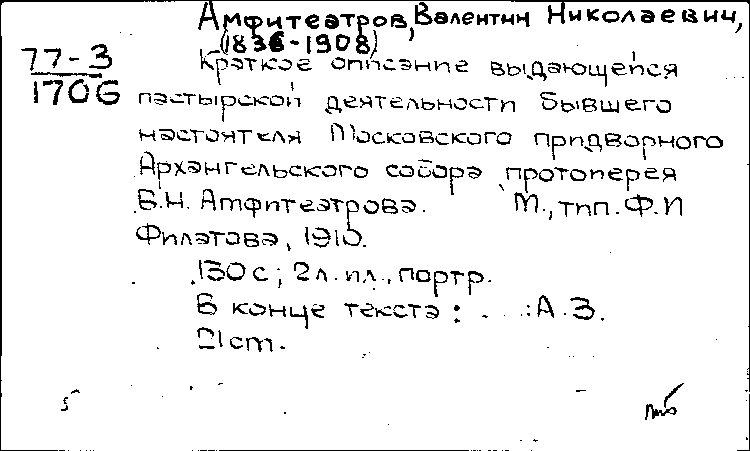 Амфитеатров, Валентин Николаевич,
(1836-1908)
77-3
1706
Краткое описание выдающейся
пастырской деятельности бывшего
настоятеля Московского придворного
Архангельского собора протоиерея
В.Н. Амфитеатрова. М., тип. Ф.И
Филатова, 1910.
130 с; 2 л. ил., портр.
В конце текста: . .:А.З.
21 cm.